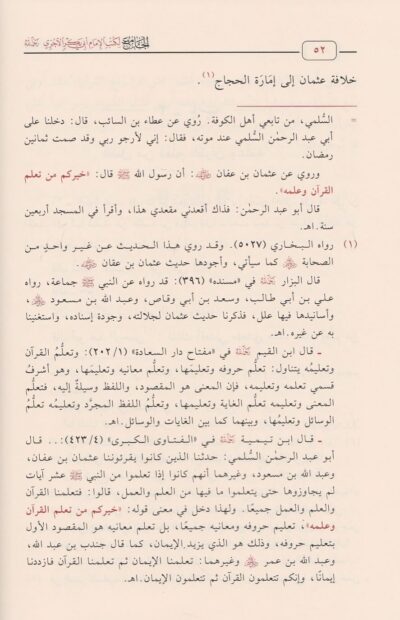 الجامع لكتب الإمام أبي بكر الآجري رحمه الله
٥٢
خلافة عثمان إلى إمَارَة الحجاج(١).
= السُّلمي، من تابعي أهل الكوفة. رُوي عن عطاء بن السائب، قال: دخلنا على
أبي عبد الرحمٰن السُّلمي عند موته، فقال: إني لأرجو ربي وقد صمت ثمانين
رمضان.
وروي عن عثمان بن عفان رضي الله عنه: أن رسول الله ﷺ قال: «خيركم من تعلم
القرآن وعلمه».
قال أبو عبد الرحمٰن: فذاك أقعدني مقعدي هذا، وأقرأ في المسجد أربعين
سنة.اهـ.
(١) رواه البخاري (٥٠٢٧). وقد روي هذا الحديث عن غير واحدٍ من
الصحابة رضي الله عنهم كما سيأتي، وأجودها حديث عثمان بن عفان رضي الله عنه.
قال البزار رحمه الله في «مسنده» (٣٩٦): قد رواه عن النبي ﷺ جماعة، رواه
علي بن أبي طالب، وسعد بن أبي وقاص، وعبد الله بن مسعود رضي الله عنهم،
وأسانيدها فيها علل، فذكرنا حديث عثمان لجلالته، وجودة إسناده، واستغنينا
به عن غيره.اهـ.
ـ قال ابن القيم رحمه الله في «مفتاح دار السعادة» (٢٠٢/١): وتعلُّمُ القرآن
وتعليمُه يتناول: تعلُّم حروفه وتعليمَها، وتعلُّم معانيه وتعليمَها، وهو أشرفُ
قسمي تعلمه وتعليمه، فإن المعنى هو المقصود، واللفظ وسيلةٌ إليه، فتعلُّم
المعنى وتعليمه تعلُّم الغاية وتعليمها، وتعلُّم اللفظ المجرَّد وتعليمُه تعلُّمُ
الوسائل وتعليمُها، وبينهما كما بين الغايات والوسائل.اهـ.
ـ قال ابن تيمية رحمه الله في «الفتاوى الكبرى» (٤٢٣/٤):.. قال
أبو عبد الرحمٰن السُّلمي: حدثنا الذين كانوا يقرئوننا عثمان بن عفان،
وعبد الله بن مسعود، وغيرهما أنهم كانوا إذا تعلموا من النبي ﷺ عشر آيات
لم يجاوزوها حتى يتعلموا ما فيها من العلم والعمل، قالوا: فتعلمنا القرآن
والعلم والعمل جميعًا. ولهذا دخل في معنى قوله: «خيركم من تعلم القرآن
وعلمه»، تعليم حروفه ومعانيه جميعًا، بل تعلم معانيه هو المقصود الأول
بتعليم حروفه، وذلك هو الذي يزيد الإيمان، كما قال جندب بن عبد الله،
وعبد الله بن عمر رضي الله عنهم وغيرهما: تعلمنا الإيمان ثم تعلمنا القرآن فازددنا
إيمانًا، وإنكم تتعلمون القرآن ثم تتعلمون الإيمان.اهـ.